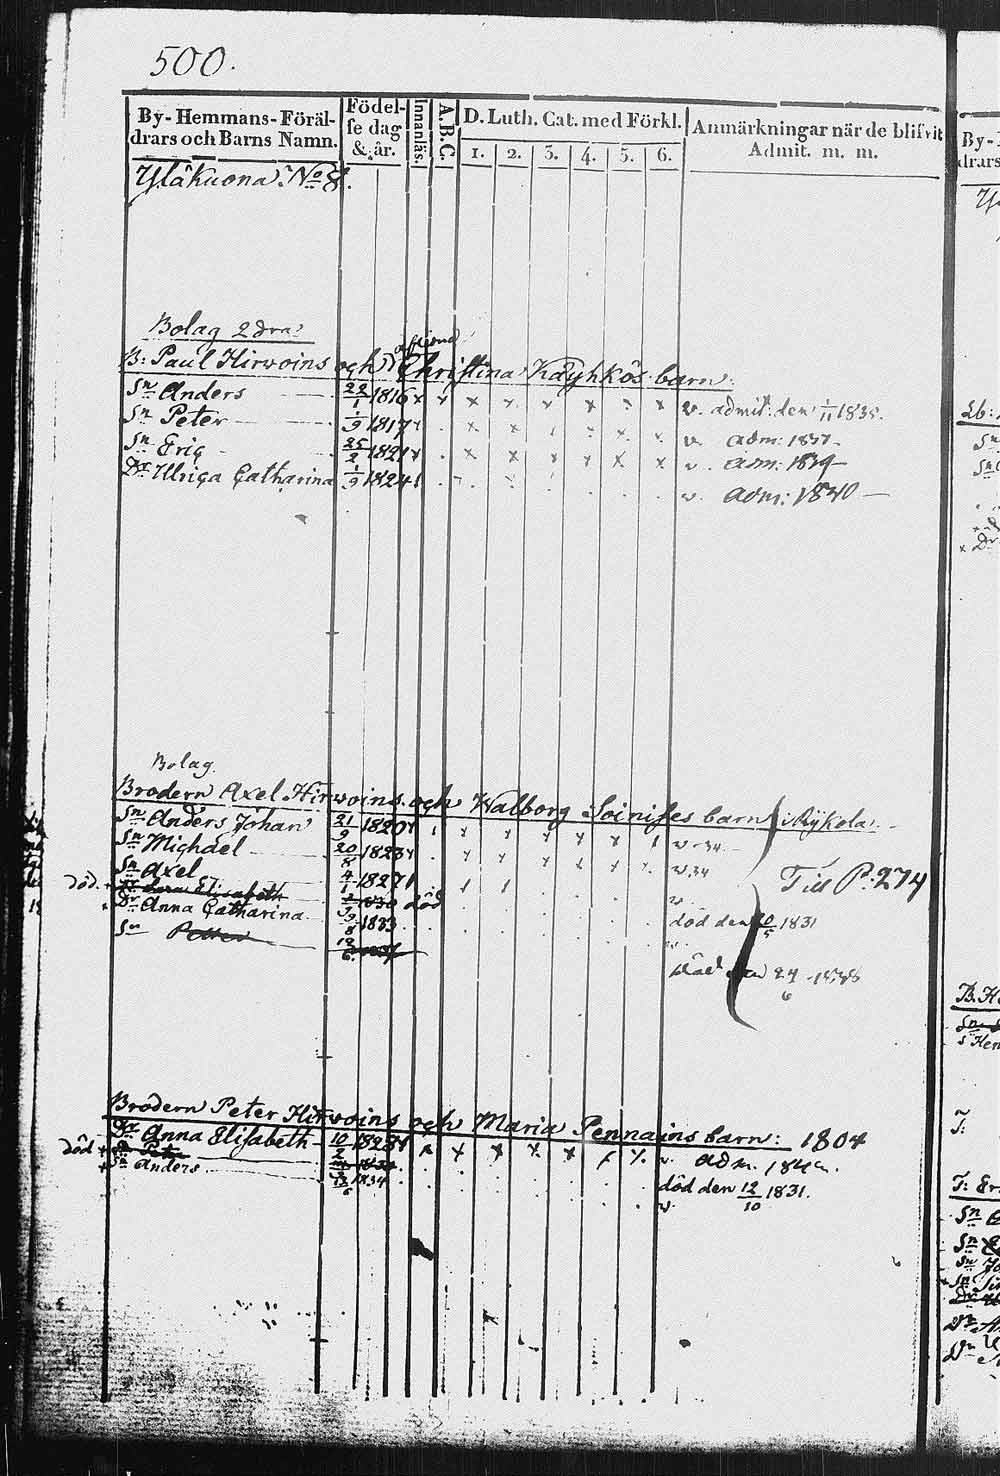 500.
By- Hemmans- Föräl-
drars och Barns Namn.
Födel-
se dag
& år.
Innanläs.
A.B.C.
D. Luth. Cat. med Förkl.
1. 2. 3. 4. 5. 6.
Anmärkningar när de blifvit
Admit. m. m.
Yläkuona No 8.
Bolag 2dra
B: Paul Hirwoins och Christina Käyhkös barn:
Sn Anders 22/1 1816 x x x x x x v. admit: den 1/11 1835
Sn Peter 1/9 1817 x x v. adm: 1837
Sn Eric 25/2 1821 x x x x x x v. adm: 1839
Dr Ulrica Catharina 1/9 1824 v. adm: 1840
Bolag
Brodern Axel Hirwoins och Walborg Soinises barn
Sn Anders Johan 21/9 1820 v. 34
Sn Michael 20/8 1823 v. 34
Sn Axel 4/1 1827
Till P. 274
död Elisabeth 1830 död död den 20/5 1831
Dr Anna Catharina 9/8 1833
Sn Petter 12/6 död den 24/6
Brodern Peter Hirwoins och Maria Pennains barn: 1804
Dr Anna Elisabeth 10/2 1828 x x x x x v. adm. 184
död Peter död den 12/10 1831.
Sn Anders 1834 v.
By-
drars
B. H
Sn
S Hen
T:
T: Er
Sn
Sn
Sn
Sn